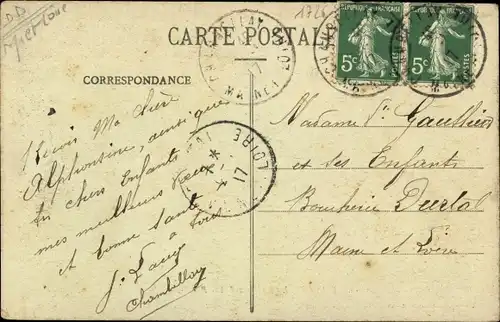 CARTE POSTALE
CORRESPONDANCE
RÉPUBLIQUE FRANÇAISE
5c
POSTES
RÉPUBLIQUE FRANÇAISE
5c
POSTES
17
LOIRE
17
Reçois Ma Chère
Alphonsine, ainsi que
tes chers Enfants
mes meilleurs vœux
et bonne santé
à tous
Chantilloy
Madame Vve Gaulthier
et ses Enfants
Boucherie Durtal
Maine et Loire